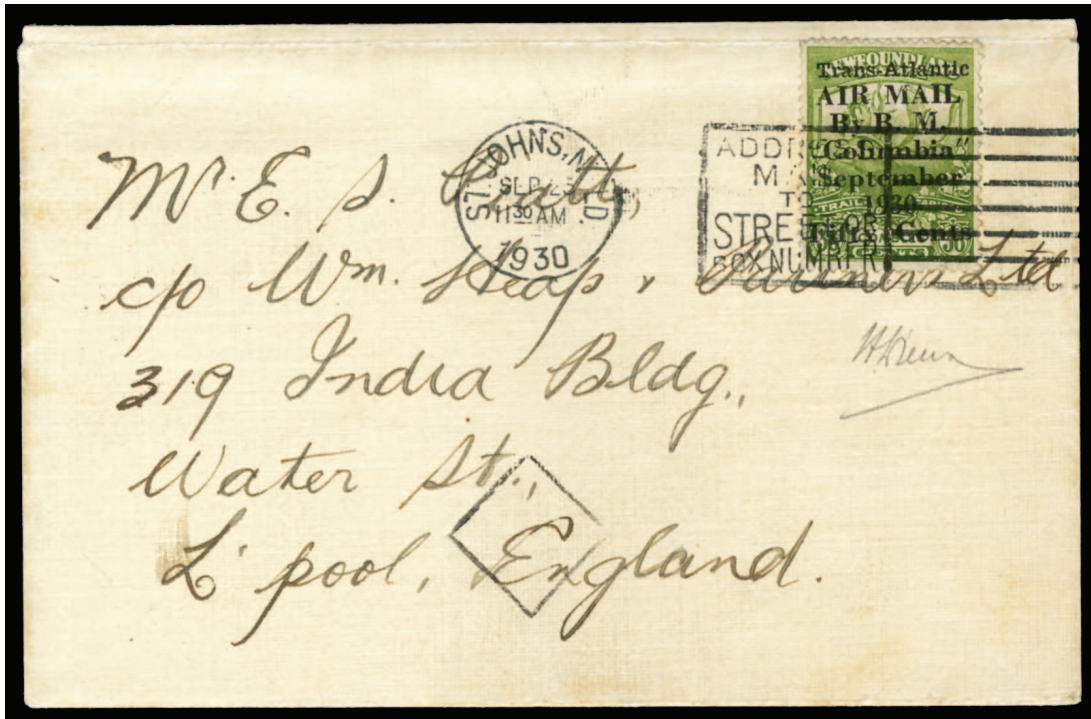 NEWFOUNDLAND
Trans-Atlantic
AIR MAIL
By B. M.
"Columbia"
September
1930
Fifty Cents
TRAIL OF THE CARIBOU
36 CENTS 36
ST. JOHN'S, N'F'L'D.
SEP 25
11 30 AM
1930
ADDRESS
MAIL
TO
STREET OR
BOX NUMBER
Mr. E. S. Pratt,
c/o Wm. Heap & Partners Ltd
319 India Bldg.,
Water St.,
L'pool, England.